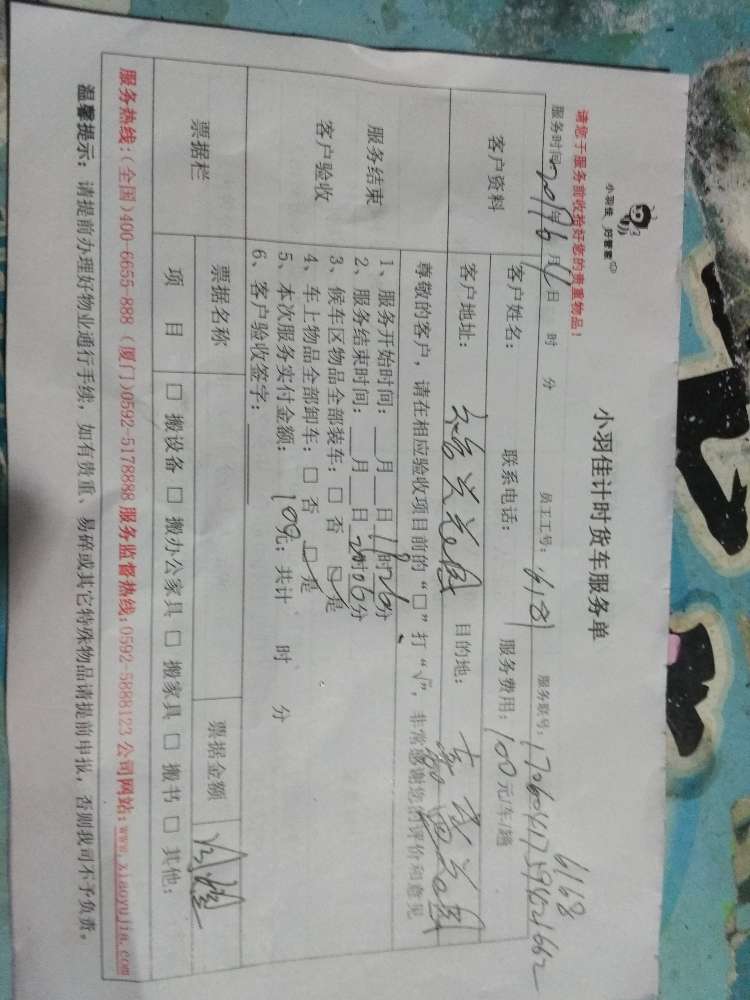 小羽佳 好管家
小羽佳计时货车服务单
请您于服务前收拾好您的贵重物品!
服务时间 2017年6月4日 时 分 员工工号: 6181 服务联号: 17060417594021662
6168
客户资料
客户姓名: 联系电话: 服务费用: 100元/车/趟
客户地址: 目的地:
服务结束
客户验收
尊敬的客户,请在相应验收项目前的“□”打“√”,非常感谢您的评价和意见
1、服务开始时间: __月__日18时26分
2、服务结束时间: __月__日20时06分
3、候车区物品全部装车: □ 否 ☑ 是
4、车上物品全部卸车: □ 否 ☑ 是
5、本次服务实付金额: 100元; 共计 时 分
6、客户验收签字:
票据栏
票据名称 票据金额
项 目 □ 搬设备 □ 搬办公家具 □ 搬家具 □ 搬书 □ 其他:
服务热线:(全国)400-6655-888 (厦门)0592-5178888 服务监督热线:0592-5888123 公司网站:www.xiaoyujia.com
温馨提示: 请提前办理好物业通行手续, 如有贵重、易碎或其它特殊物品请提前申报, 否则我司不予负责。